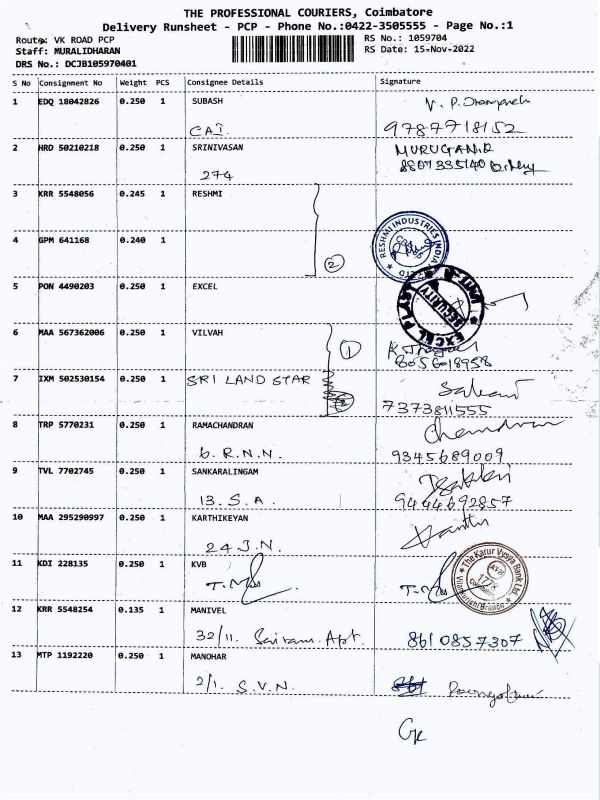 THE PROFESSIONAL COURIERS, Coimbatore
Delivery Runsheet - PCP - Phone No.:0422-3505555 - Page No.:1
Route: VK ROAD PCP
RS No.: 1059704
Staff: MURALIDHARAN
RS Date: 15-Nov-2022
DRS No.: DCJB105970401
S No Consignment No Weight PCS Consignee Details Signature
1 EDQ 18042826 0.250 1 SUBASH
CAI. 9787718152
2 HRD 50210218 0.250 1 SRINIVASAN MURUGAN.R
274 8807335140
3 KRR 5548056 0.245 1 RESHMI
RESHMI INDUSTRIES INDIA
4 GPM 641168 0.240 1
2
5 PON 4490203 0.250 1 EXCEL
EXCEL PLAST UNIT-I SECURITY
6 MAA 567362006 0.250 1 VILVAH
1 8056018958
7 IXM 502530154 0.250 1 SRI LAND STAR
7373811555
8 TRP 5770231 0.250 1 RAMACHANDRAN Chandran
6. R.N.N. 9345689009
9 TVL 7702745 0.250 1 SANKARALINGAM
13. S.A. 9444692857
10 MAA 295290997 0.250 1 KARTHIKEYAN
24 J.N.
11 KDI 228135 0.250 1 KVB
The Karur Vysya Bank Ltd.
12 KRR 5548254 0.135 1 MANIVEL
32/11. Sairam. Apt. 8610857307
13 MTP 1192220 0.250 1 MANOHAR
2/1. S.V.N.